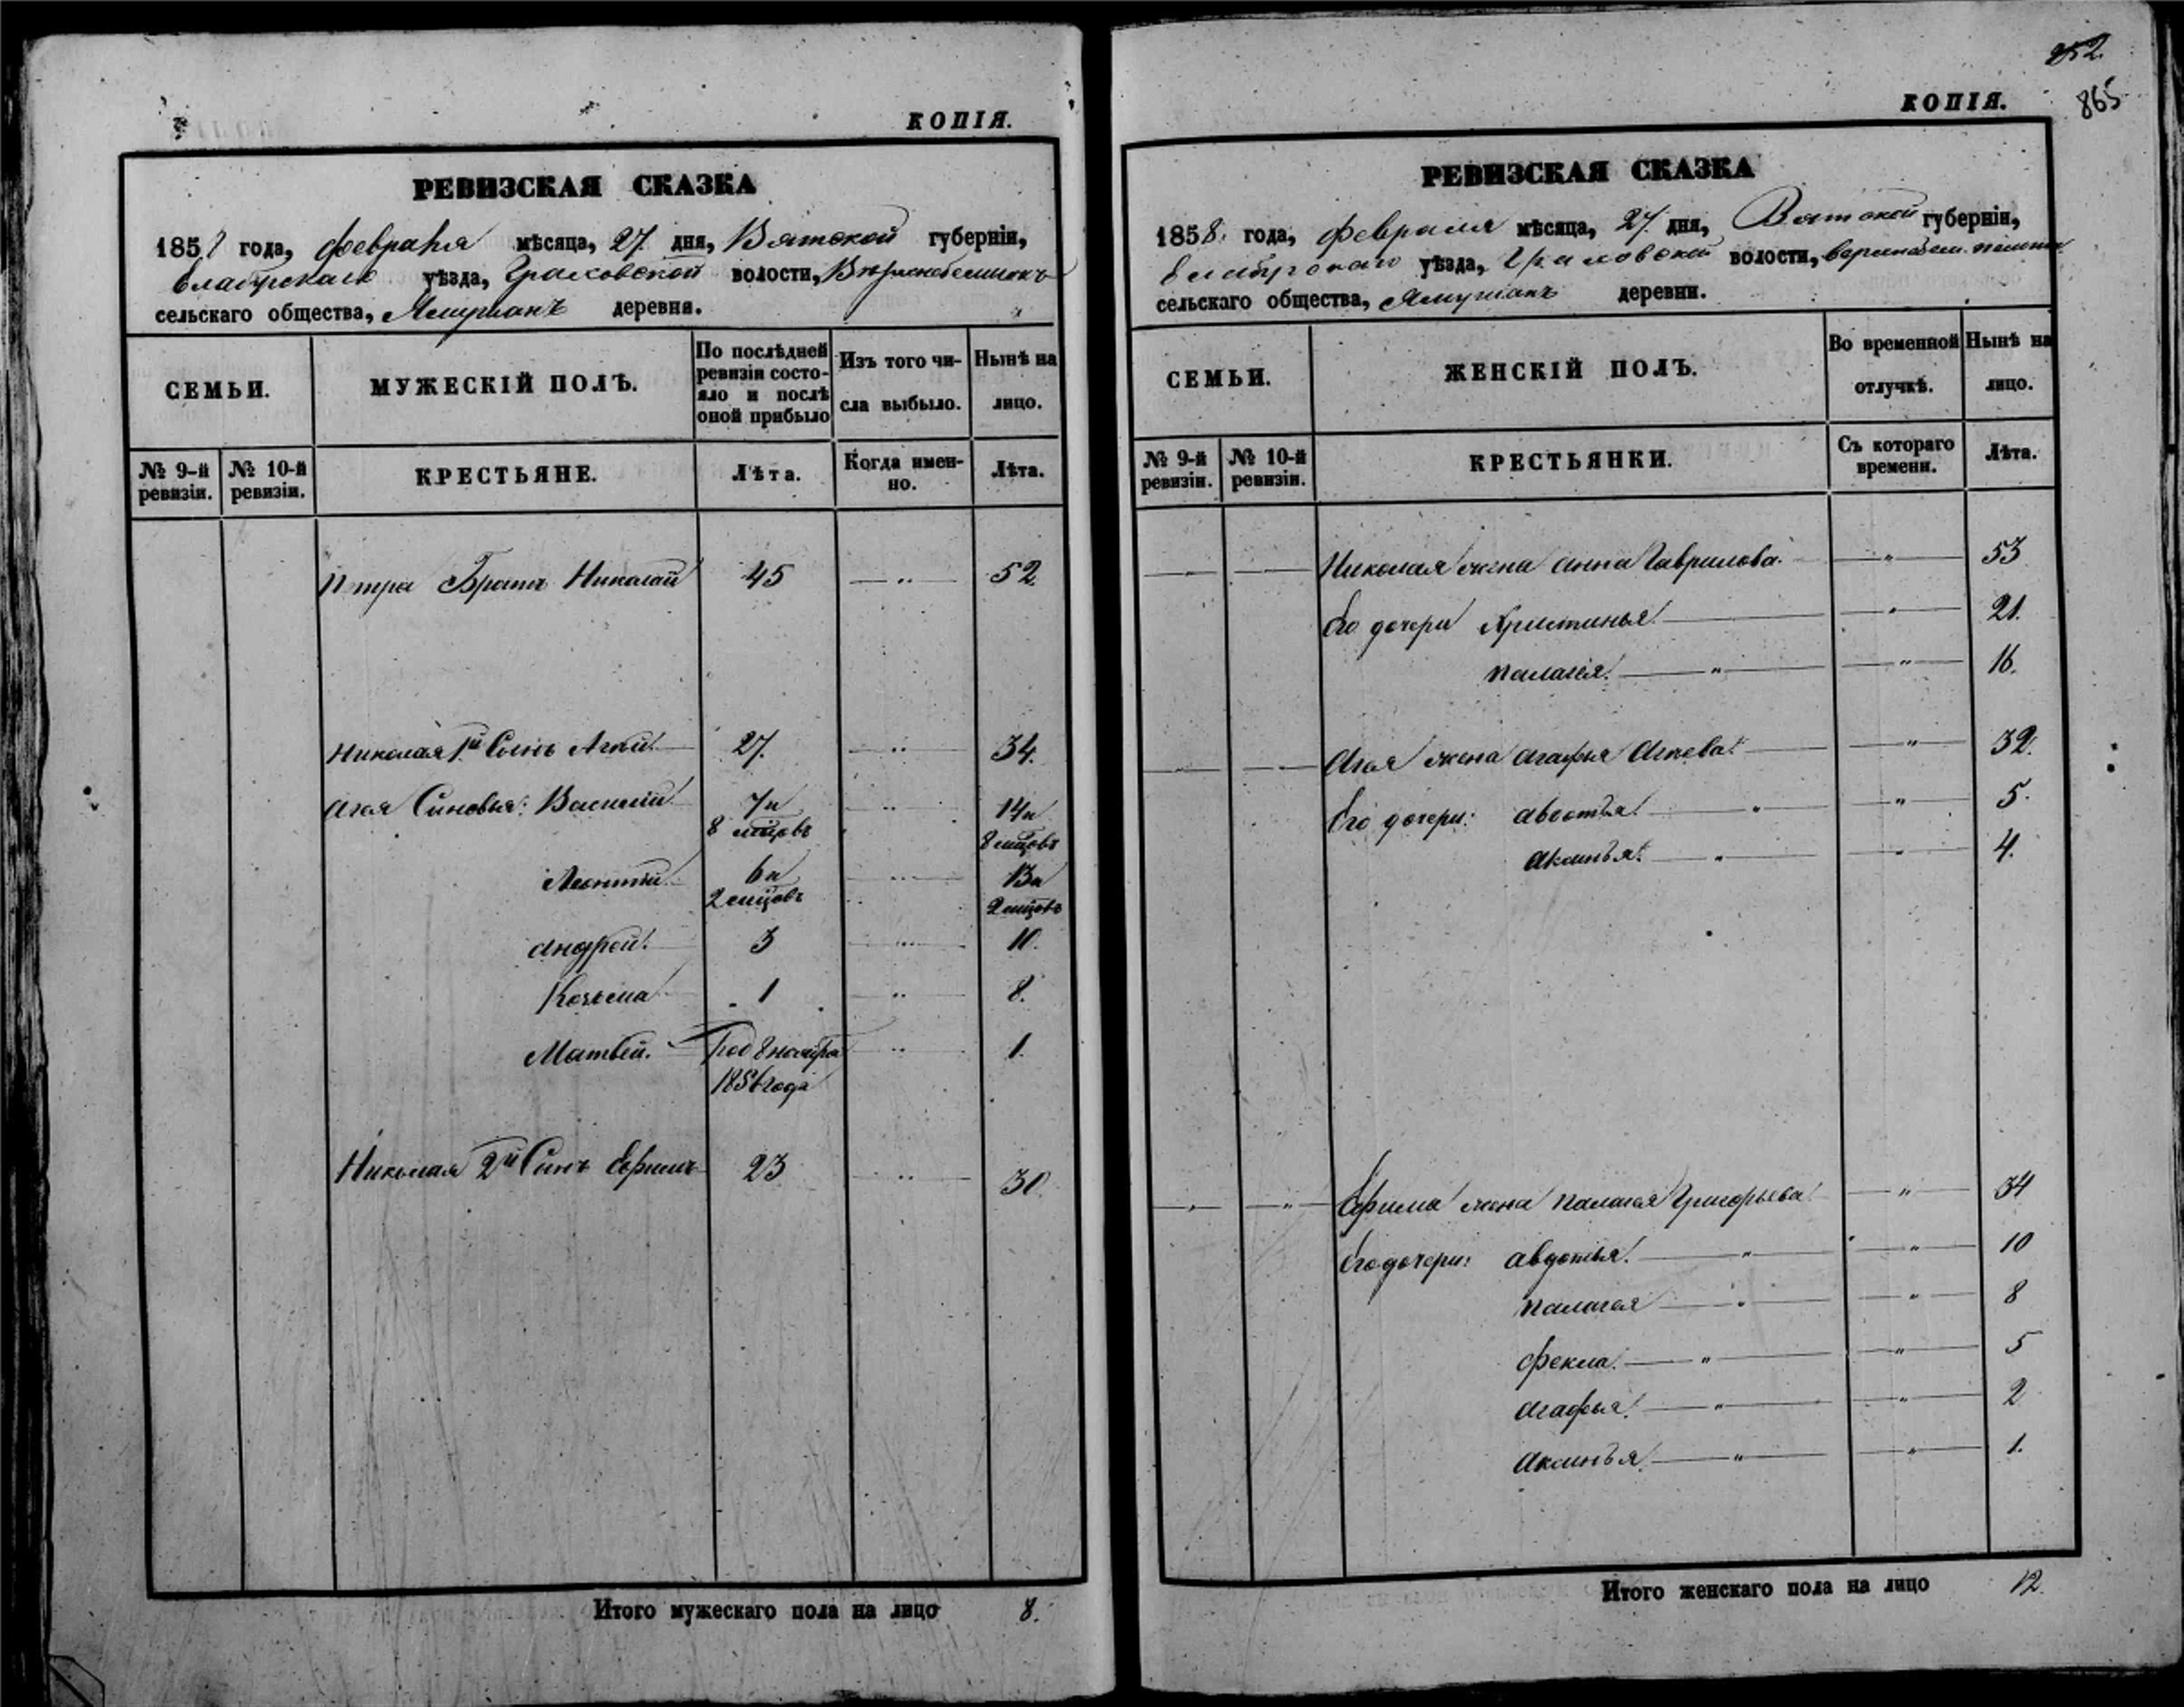 КОПІЯ.
РЕВИЗСКАЯ СКАЗКА
1858 года, февраля мѣсяца, 27 дня, Вятской губерніи,
Елабужскаго уѣзда, Граховской волости,
сельскаго общества, деревни.
СЕМЬИ.
МУЖЕСКІЙ ПОЛЪ.
По послѣдней ревизіи состо-
яло и послѣ
оной прибыло
Изъ того чи-
сла выбыло.
Нынѣ на
лицо.
№ 9-й ревизіи.
№ 10-й ревизіи.
КРЕСТЬЯНЕ.
Лѣта.
Когда имен-
но.
Лѣта.
Петра Братъ Николай 45 — " — 52.
Николая 1й Сынъ Агей 27. — " — 34.
Агея Сыновья: Василий 7 и — " — 14 и
8 мцовъ 8 мцовъ
Леонтий 6 и — " — 13 и
2 мцовъ 2 мцовъ
Андрей 3 — " — 10.
Козьма 1 — " — 8.
Матвей. Род 8 ноября — " — 1.
1856 года
Николая 2й Сынъ Ефимъ 23 — " — 30.
Итого мужескаго пола на лицо 8.
252.
865
КОПІЯ.
РЕВИЗСКАЯ СКАЗКА
1858. года, февраля мѣсяца, 27. дня, Вятской губерніи,
Елабужскаго уѣзда, Граховской волости,
сельскаго общества, деревни.
СЕМЬИ.
ЖЕНСКІЙ ПОЛЪ.
Во временной
отлучкѣ.
Нынѣ на
лицо.
№ 9-й ревизіи.
№ 10-й ревизіи.
КРЕСТЬЯНКИ.
Съ котораго
времени.
Лѣта.
Николая жена Анна Гаврилова. — " — 53
Его дочери Христинья — " — 21.
Палагея. — " — 16.
Агея жена Агафья — " — 32.
Его дочери: Авдотья — " — 5.
Аксинья. — " — 4.
Ефима жена Палагея Григорьева — " — 34
Его дочери: Авдотья. — " — 10
Палагея — " — 8
Фекла. — " — 5
Агафья. — " — 2
Аксинья — " — 1.
Итого женскаго пола на лицо 12.